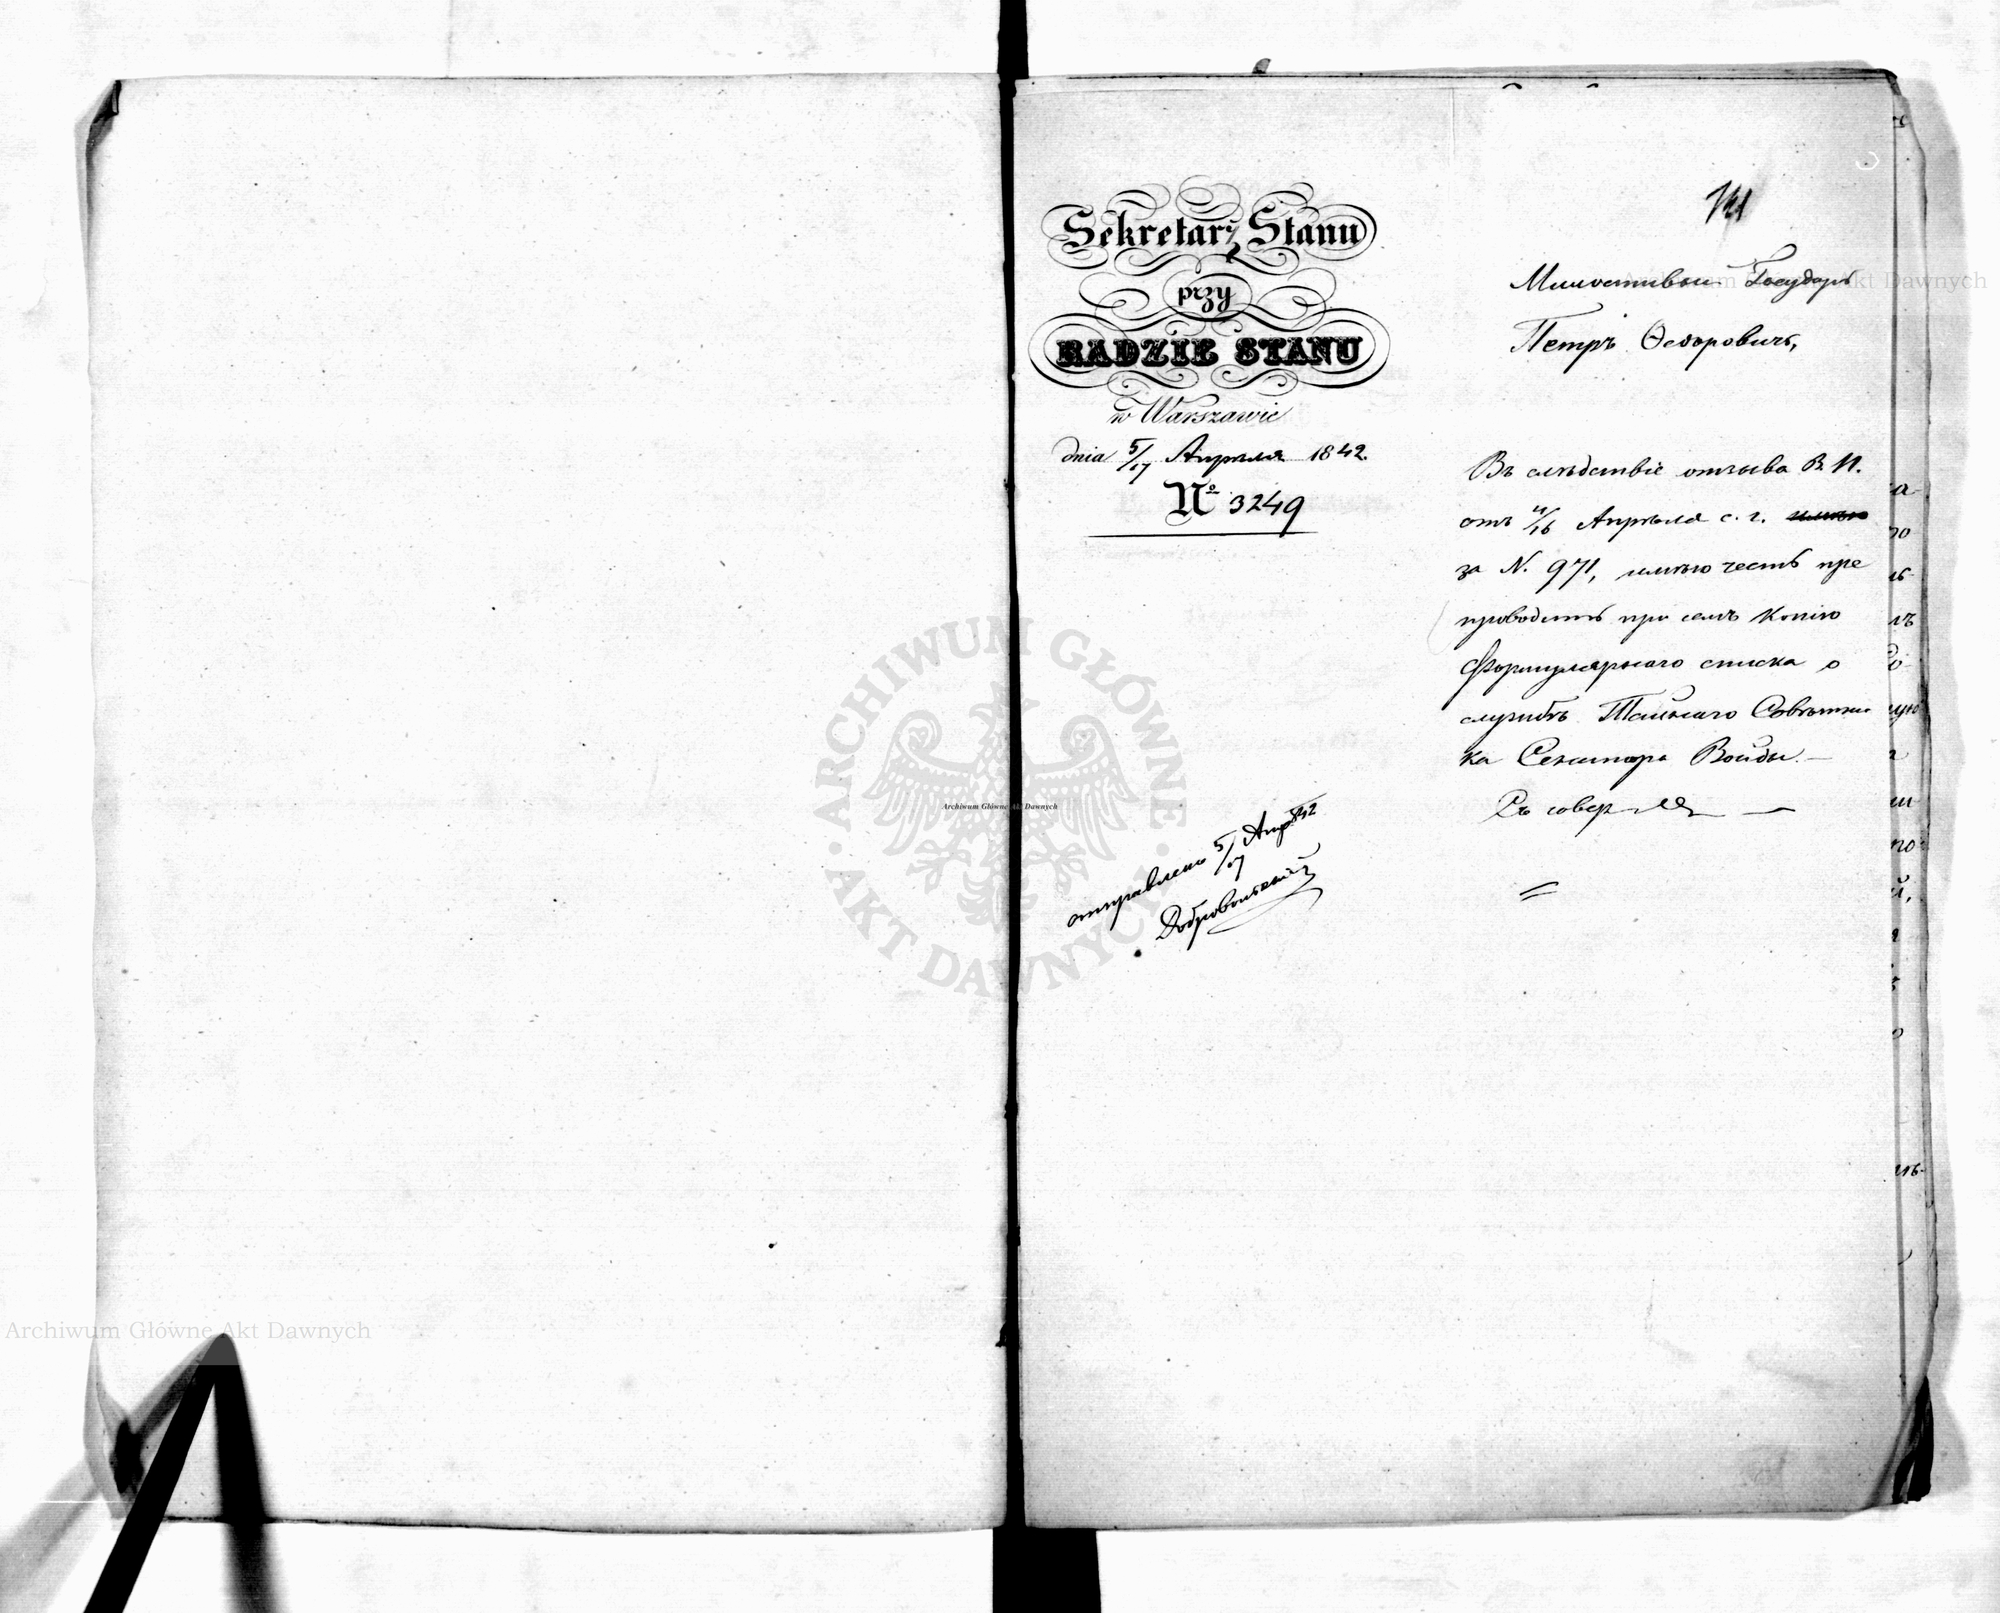 Sekretarz Stanu
przy
RADZIE STANU
w Warszawie
dnia 5/17 Апрѣля 1842.
No 3249
отправлено 5/17 Апр 842
Добровольскій
141
Милостивый Государь
Петръ Ѳедоровичъ,
Въ слѣдствіе отзыва В. П.
отъ 4/16 Апрѣля с. г. имѣю
за N. 971, имѣю честь пре
проводить при семъ копію
Формулярнаго списка о
службѣ Тайнаго Совѣтни
ка Сенатора Войды. —
Съ совер
ARCHIWUM GŁÓWNE AKT DAWNYCH
Archiwum Główne Akt Dawnych
Archiwum Główne Akt Dawnych
Archiwum Główne Akt Dawnych